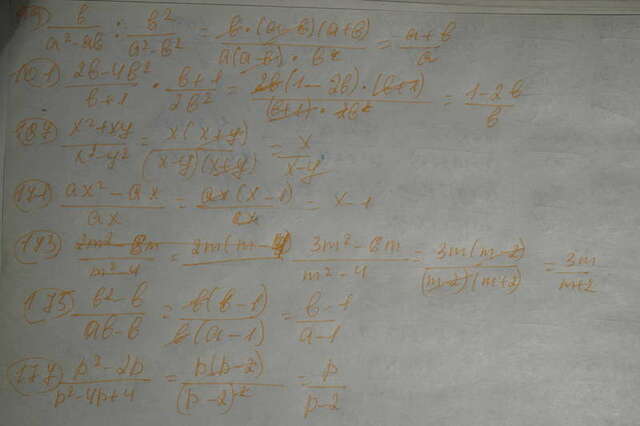 99 b/(a²-ab) : b²/(a²-b²) = b·(a-b)(a+b)/(a(a-b)·b²) = (a+b)/a
101 (2b-4b²)/(b+1) · (b+1)/(2b²) = 2b(1-2b)·(b+1)/((b+1)·2b²) = (1-2b)/b
(x²+xy)/(x²-y²) = x(x+y)/((x-y)(x+y)) = x/(x-y)
171 (ax²-ax)/(ax) = ax(x-1)/(ax) = x-1
173 (2m²-8m)/(m²-4) = 2m(m-4) (3m²-6m)/(m²-4) = 3m(m-2)/((m-2)(m+2)) = 3m/(m+2)
175 (b²-b)/(ab-b) = b(b-1)/(b(a-1)) = (b-1)/(a-1)
177 (p²-2p)/(p²-4p+4) = p(p-2)/(p-2)² = p/(p-2)